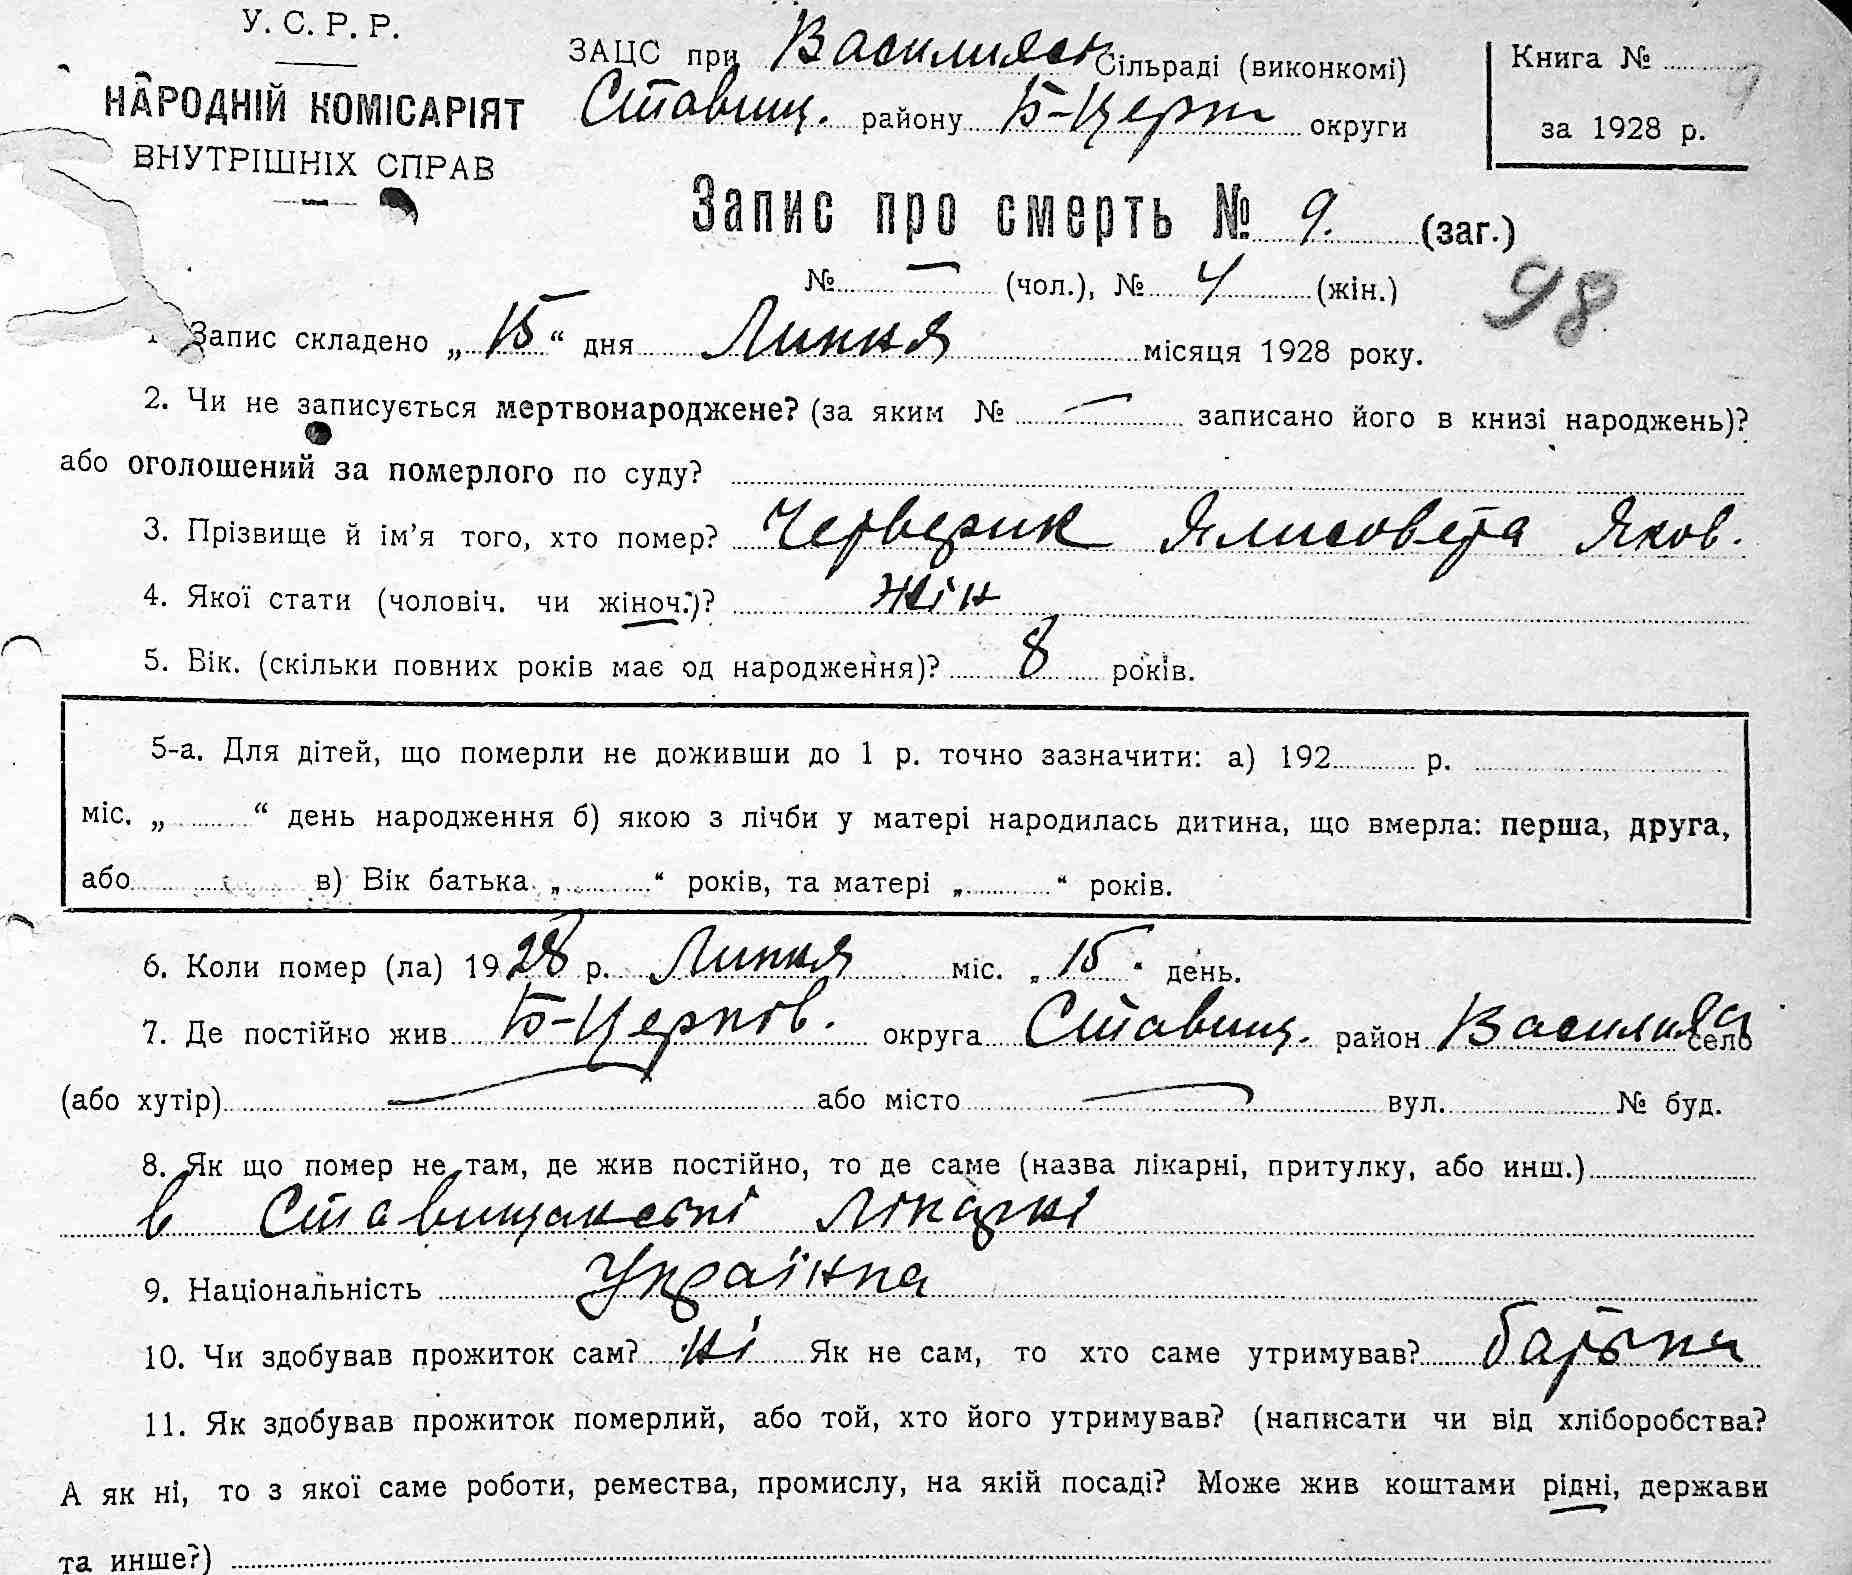 У. С. Р. Р.
НАРОДНІЙ КОМІСАРІЯТ
ВНУТРІШНІХ СПРАВ
ЗАЦС при Василихск Сільраді (виконкомі)
Ставищ. району Б-Церк округи
Книга №
за 1928 р.
Запис про смерть № 9. (заг.)
№ — (чол.), № 4 (жін.)
98
1. Запис складено „15“ дня Липня місяця 1928 року.
2. Чи не записується мертвонароджене? (за яким № — записано його в книзі народжень)?
або оголошений за померлого по суду?
3. Прізвище й ім’я того, хто помер? Червик Ялисовета Яков.
4. Якої стати (чоловіч. чи жіноч.)? жін
5. Вік. (скільки повних років має од народження)? 8 років.
5-а. Для дітей, що померли не доживши до 1 р. точно зазначити: а) 192 р.
міс. „ “ день народження б) якою з лічби у матері народилась дитина, що вмерла: перша, друга,
або в) Вік батька „ “ років, та матері „ “ років.
6. Коли помер (ла) 1928 р. Липня міс. „15“ день.
7. Де постійно жив Б-Церков. округа Ставищ. район село
(або хутір) — або місто — вул. № буд.
8. Як що помер не там, де жив постійно, то де саме (назва лікарні, притулку, або инш.)
в Ставищанскій лікарні
9. Національність Українка
10. Чи здобував прожиток сам? ні Як не сам, то хто саме утримував? батька
11. Як здобував прожиток померлий, або той, хто його утримував? (написати чи від хліборобства?
А як ні, то з якої саме роботи, ремества, промислу, на якій посаді? Може жив коштами рідні, держави
та инше?)